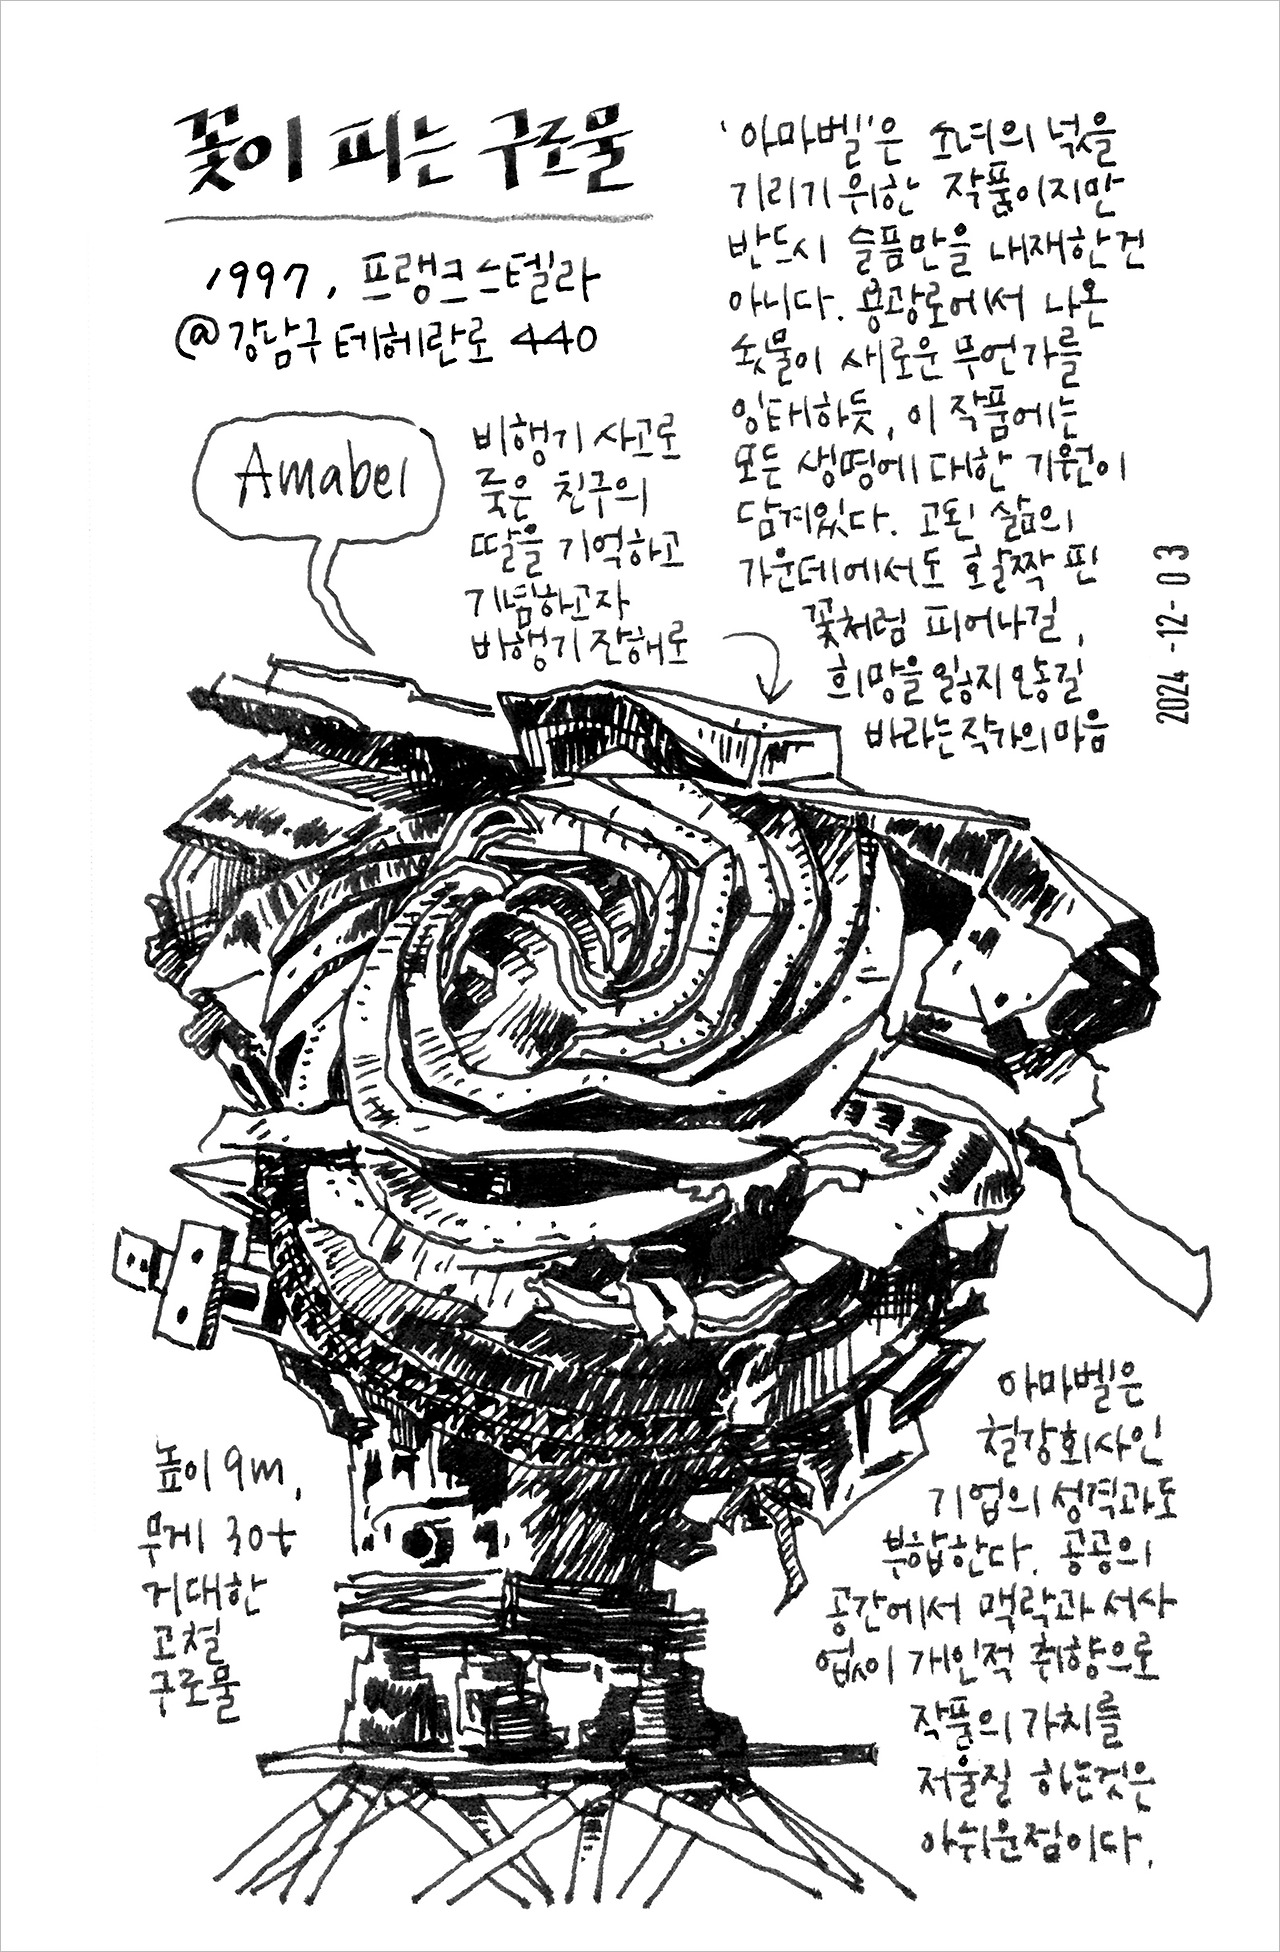 꽃이 피는 구조물
1997, 프랭크 스텔라
@강남구 테헤란로 440
Amabel
비행기 사고로
죽은 친구의
딸을 기억하고
기념하고자
비행기 잔해로
'아마벨'은 소녀의 넋을
기리기 위한 작품이지만
반드시 슬픔만을 내재한 건
아니다. 용광로에서 나온
쇳물이 새로운 무언가를
잉태하듯, 이 작품에는
모든 생명에 대한 기원이
담겨있다. 고된 삶의
가운데에서도 활짝 핀
꽃처럼 피어나길,
희망을 잃지 않길
바라는 작가의 마음
2024-12-03
아마벨은
철강회사인
기업의 성격과도
부합한다. 공공의
공간에서 맥락과 서사
없이 개인적 취향으로
작품의 가치를
저울질 하는것은
아쉬운점이다.
높이 9m,
무게 30t
거대한
고철
구조물